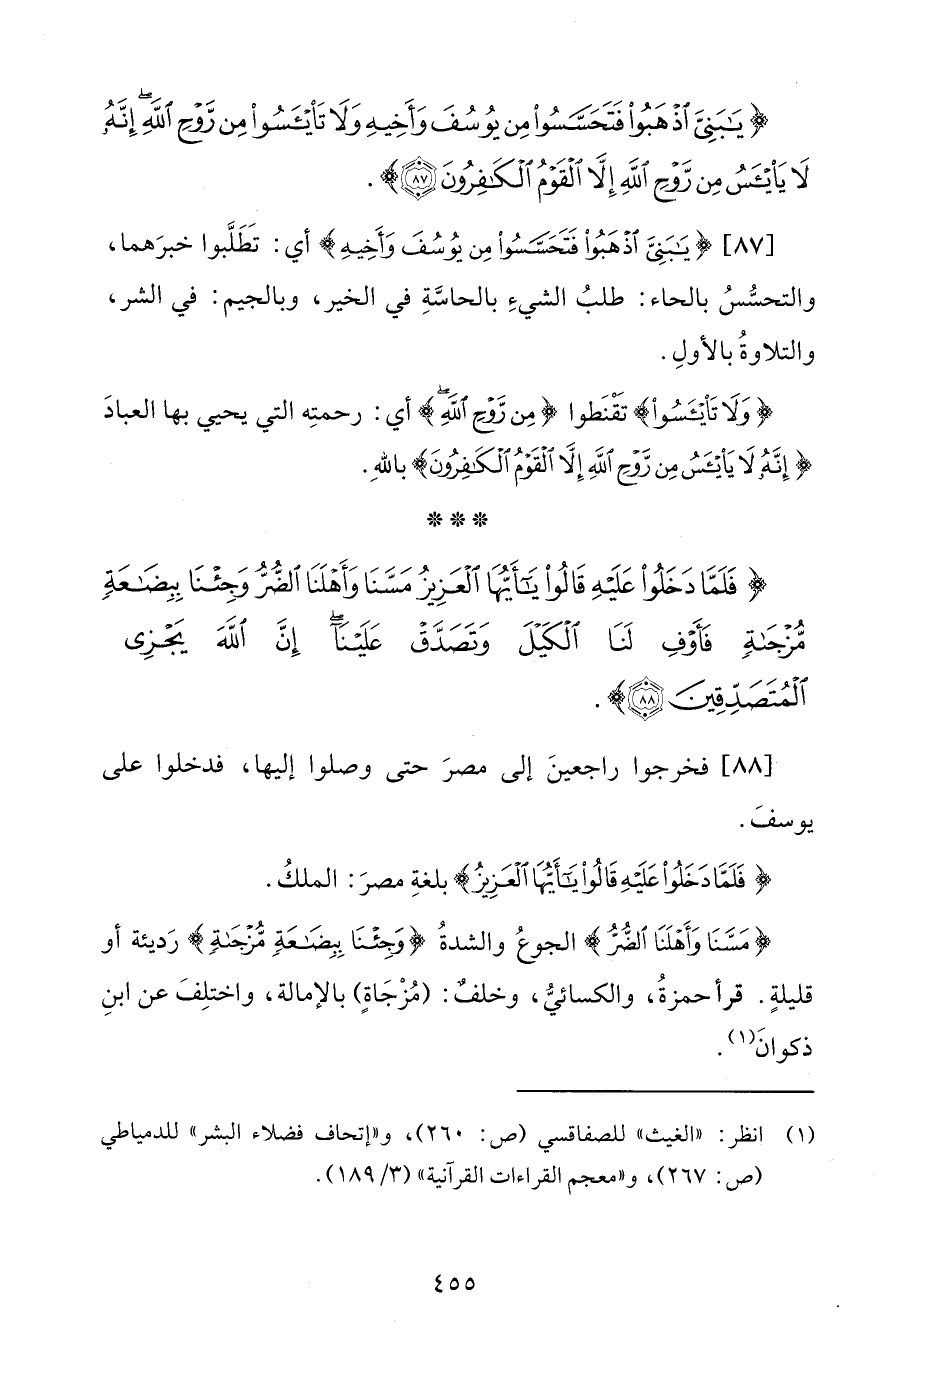 ﴿ يَـٰبَنِىَّ ٱذْهَبُوا۟ فَتَحَسَّسُوا۟ مِن يُوسُفَ وَأَخِيهِ وَلَا تَا۟يْـَٔسُوا۟ مِن رَّوْحِ ٱللَّهِ ۖ إِنَّهُۥ
لَا يَا۟يْـَٔسُ مِن رَّوْحِ ٱللَّهِ إِلَّا ٱلْقَوْمُ ٱلْكَـٰفِرُونَ ٨٧ ﴾ .
[٨٧] ﴿ يَـٰبَنِىَّ ٱذْهَبُوا۟ فَتَحَسَّسُوا۟ مِن يُوسُفَ وَأَخِيهِ ﴾ أي: تَطَلَّبوا خبرَهما،
والتحسُّسُ بالحاء: طلبُ الشيءِ بالحاسَّةِ في الخير، وبالجيم: في الشر،
والتلاوةُ بالأولِ.
﴿ وَلَا تَا۟يْـَٔسُوا۟ ﴾ تقْنَطوا ﴿ مِن رَّوْحِ ٱللَّهِ ۖ ﴾ أي: رحمتِه التي يحيي بها العبادَ
﴿ إِنَّهُۥ لَا يَا۟يْـَٔسُ مِن رَّوْحِ ٱللَّهِ إِلَّا ٱلْقَوْمُ ٱلْكَـٰفِرُونَ ﴾ باللهِ.
* * *
﴿ فَلَمَّا دَخَلُوا۟ عَلَيْهِ قَالُوا۟ يَـٰٓأَيُّهَا ٱلْعَزِيزُ مَسَّنَا وَأَهْلَنَا ٱلضُّرُّ وَجِئْنَا بِبِضَـٰعَةٍ
مُّزْجَىٰةٍ فَأَوْفِ لَنَا ٱلْكَيْلَ وَتَصَدَّقْ عَلَيْنَآ ۖ إِنَّ ٱللَّهَ يَجْزِى
ٱلْمُتَصَدِّقِينَ ٨٨ ﴾ .
[٨٨] فخرجوا راجعينَ إلى مصرَ حتى وصلوا إليها، فدخلوا على
يوسفَ.
﴿ فَلَمَّا دَخَلُوا۟ عَلَيْهِ قَالُوا۟ يَـٰٓأَيُّهَا ٱلْعَزِيزُ ﴾ بلغةِ مصرَ: الملكُ.
﴿ مَسَّنَا وَأَهْلَنَا ٱلضُّرُّ ﴾ الجوعُ والشدةُ ﴿ وَجِئْنَا بِبِضَـٰعَةٍ مُّزْجَىٰةٍ ﴾ رَديئة أو
قليلةٍ. قرأ حمزةُ، والكسائيُّ، وخلفٌ: (مُزْجَاةٍ) بالإمالة، واختلِفَ عن ابنِ
ذكوانَ(١).
(١) انظر: «الغيث» للصفاقسي (ص: ٢٦٠)، و«إتحاف فضلاء البشر» للدمياطي
(ص: ٢٦٧)، و«معجم القراءات القرآنية» (٣/ ١٨٩).
٤٥٥